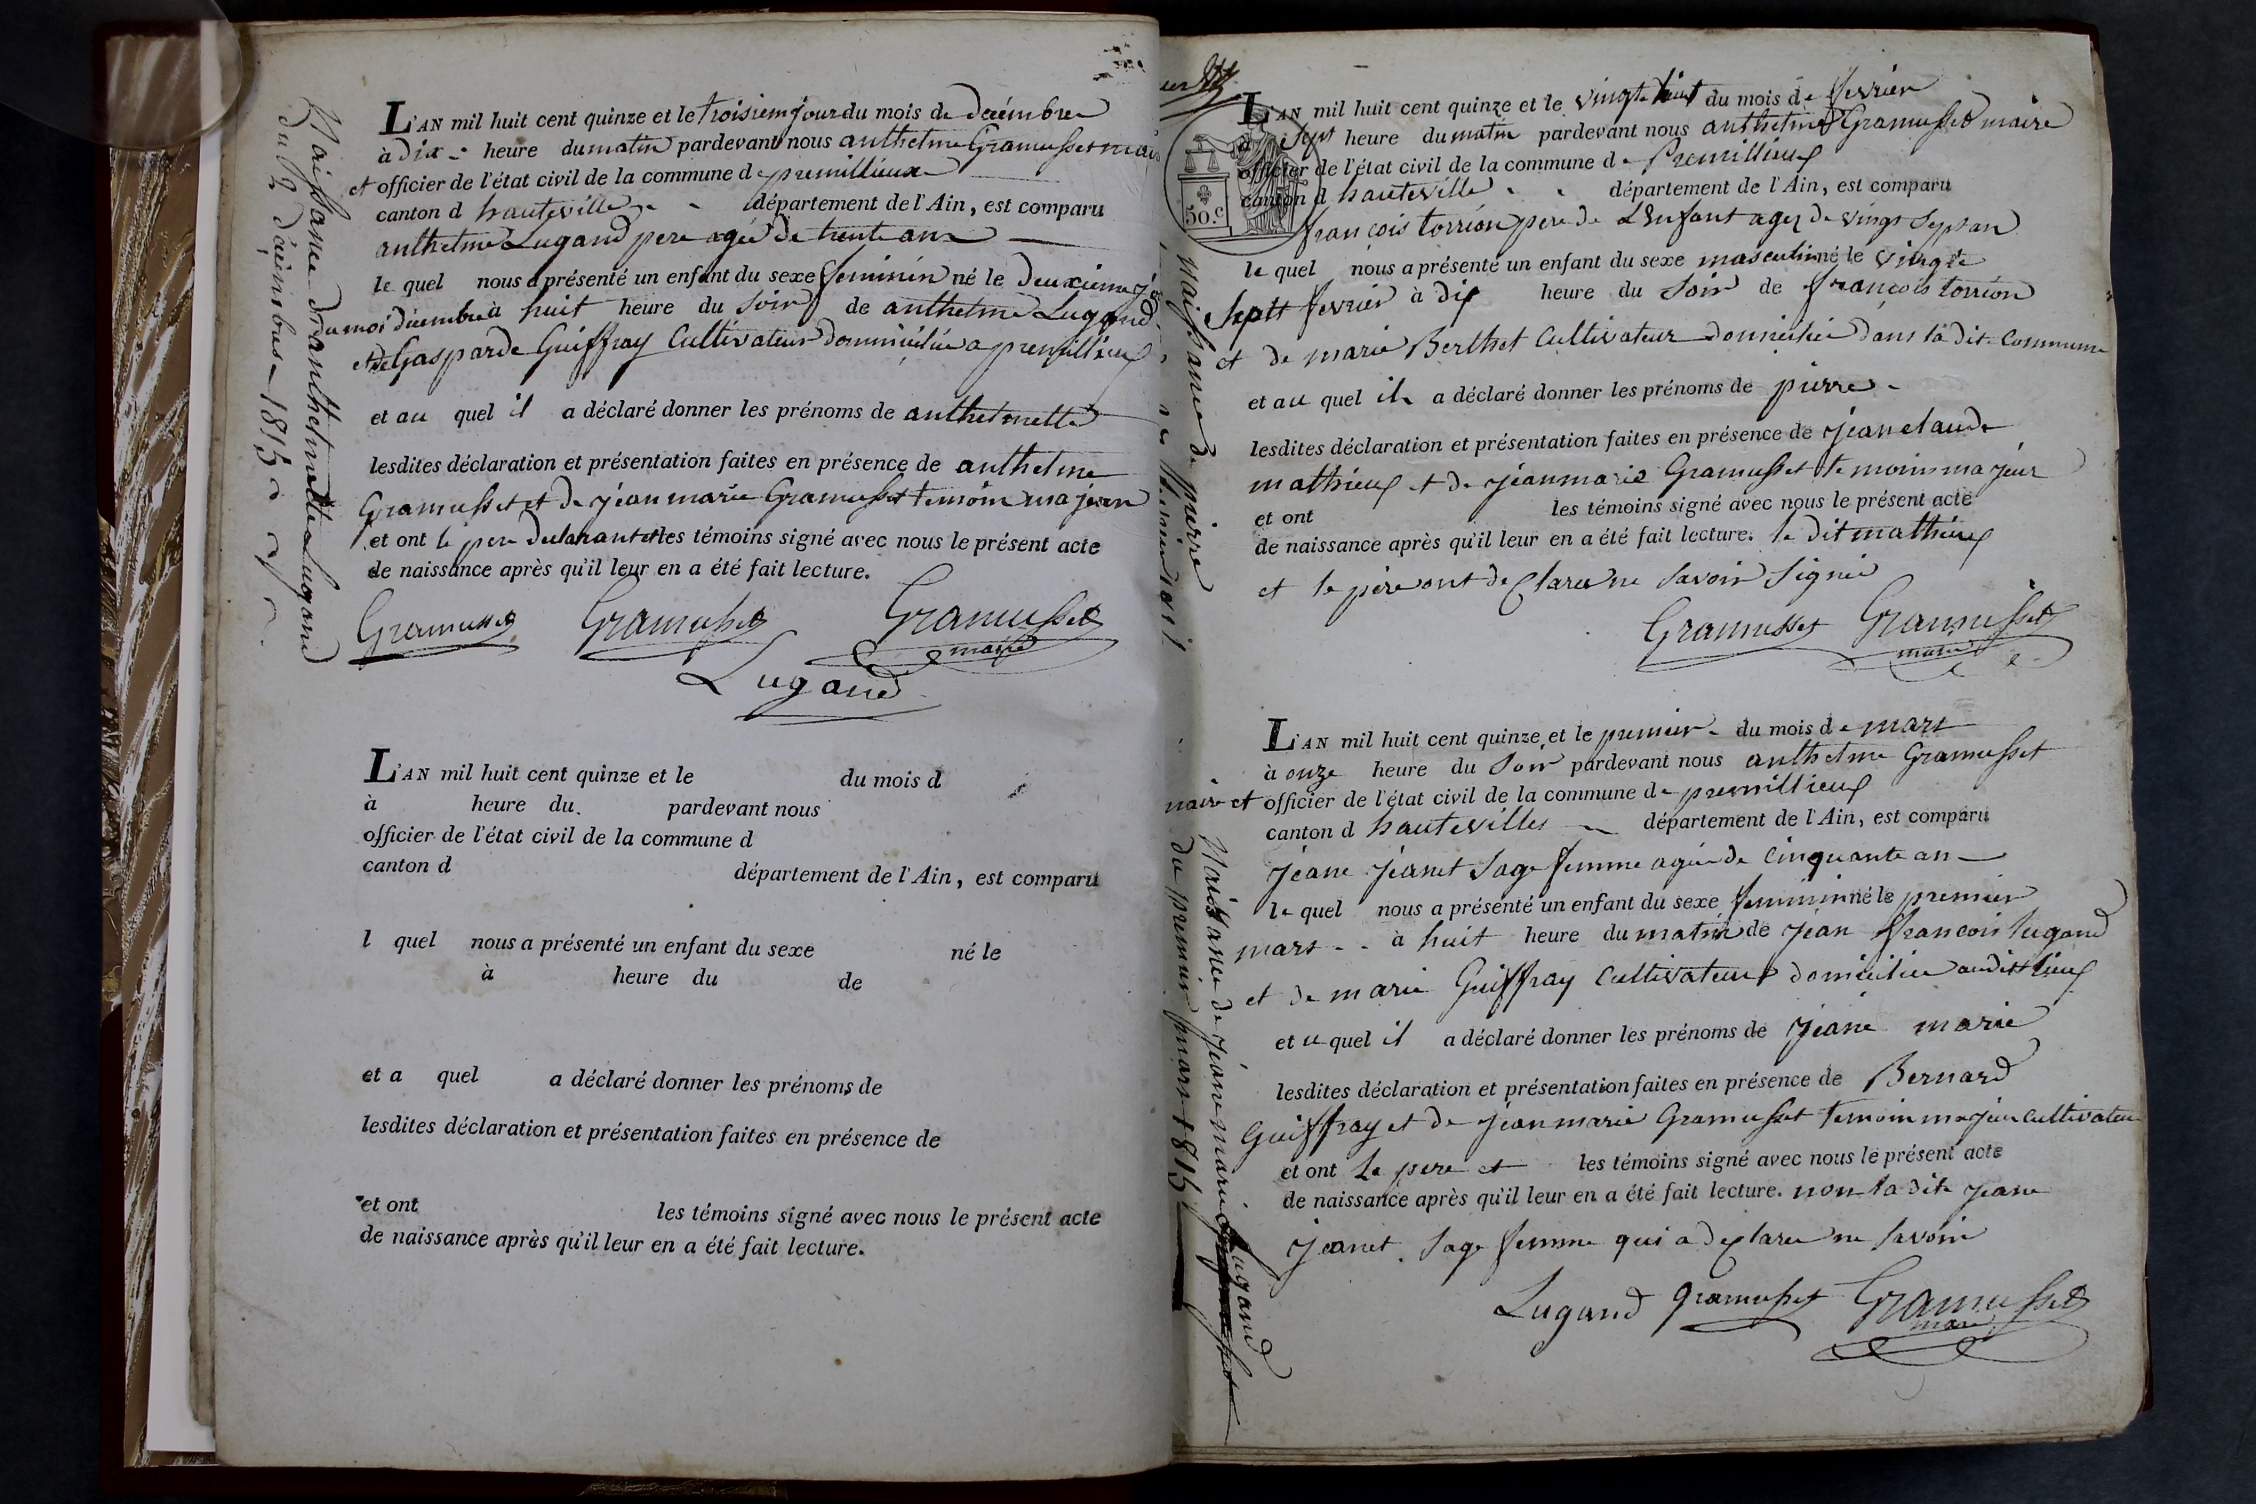 Naissance d'anthelmette Lugand
du 2 décembre 1815
L'AN mil huit cent quinze et le troisiem jour du mois de decémbre
à dix heure du matin pardevant nous anthelme Gramusset maire
et officier de l'état civil de la commune de premillieux
canton d hauteville département de l'Ain, est comparu
anthelme Lugand pere agée de trente ans
le quel nous a présenté un enfant du sexe feminin né le deuxieme
du moi décembre à huit heure du soir de anthelme Lugand
et de Gasparde Guiffray Cultivateur domiciliée a premillieux
et au quel il a déclaré donner les prénoms de anthelmette
lesdites déclaration et présentation faites en présence de anthelme
Gramusset et de jéan marie Gramusset temoin majeur
et ont le pere declarant et les témoins signé avec nous le présent acte
de naissance après qu'il leur en a été fait lecture.
Gramusset Gramusset Gramusset
maire
Lugand
L'AN mil huit cent quinze et le du mois d
à heure du. pardevant nous
officier de l'état civil de la commune d
canton d département de l'Ain, est comparu
l quel nous a présenté un enfant du sexe né le
à heure du de
et a quel a déclaré donner les prénoms de
lesdites déclaration et présentation faites en présence de
et ont les témoins signé avec nous le présent acte
de naissance après qu'il leur en a été fait lecture.
50.c
Naissance de pierre
L'AN mil huit cent quinze et le vingt huit du mois de fevrier
à sept heure du matin pardevant nous anthelme Gramusset maire
officier de l'état civil de la commune de Premillieux
canton d hauteville département de l'Ain, est comparu
françois torrion pere de L'Enfant agez de vingt sept an
le quel nous a présenté un enfant du sexe masculin né le vingte
septt fevrier à dix heure du soir de françois torrion
et de marie Berthet Cultivateur domiciliée dans la dit commune
et au quel il a déclaré donner les prénoms de pierre
lesdites déclaration et présentation faites en présence de jéan claude
mathieux et de jéanmarie Gramusset temoins majeur
et ont les témoins signé avec nous le présent acte
de naissance après qu'il leur en a été fait lecture. le dit mathieux
et le pére ont declaree ne savoir signée
Gramusset Gramusset
maire
Naissance de jéane marie Lugand
du premier mars 1815
L'AN mil huit cent quinze et le premier du mois de mars
à onze heure du soir pardevant nous anthelme Gramusset
maire et officier de l'état civil de la commune de premillieux
canton d hauteville département de l'Ain, est comparu
jéane jéanet sage femme agée de cinquante an
le quel nous a présenté un enfant du sexe feminin né le premier
mars à huit heure du matin de jéan françois lugand
et de marie Guiffray Cultivateur domiciliée audit lieux
et u quel il a déclaré donner les prénoms de jéane marie
lesdites déclaration et présentation faites en présence de Bernard
Guiffray et de jéanmarie Gramusset temoin majeur cultivateur
et ont Le pere et les témoins signé avec nous le présent acte
de naissance après qu'il leur en a été fait lecture. non la dite jéane
jéanet sage femme qui a declaree ne savoir
Lugand Gramusset Gramusset
maire